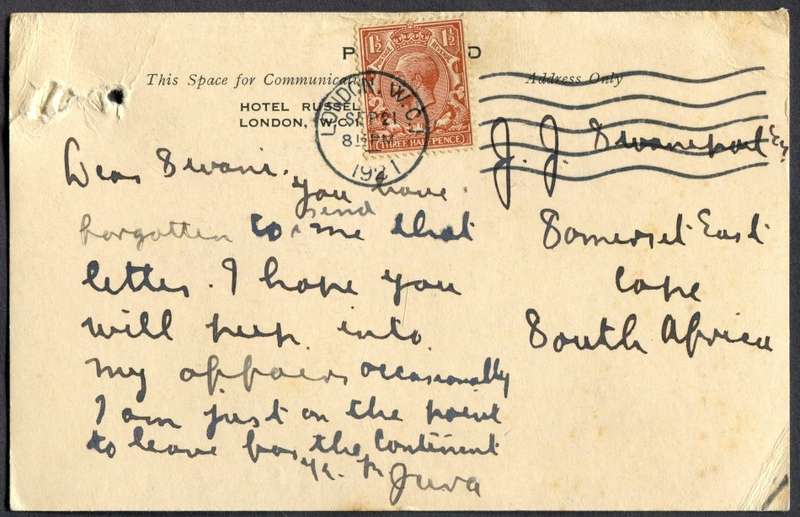 P D
This Space for Communicat
Address Only
HOTEL RUSSEL
LONDON, W.C.
1½ 1½
THREE HALFPENCE
LONDON. W.C.1
SEP 21
8 15 PM
1921
J. J. Swanepoel Esq
Somerset East
Cape
South Africa
Dear Swanie,
you have
forgotten to send me that
letter. I hope you
will peep into
my affairs occasionally
I am just on the point
to leave for the Continent